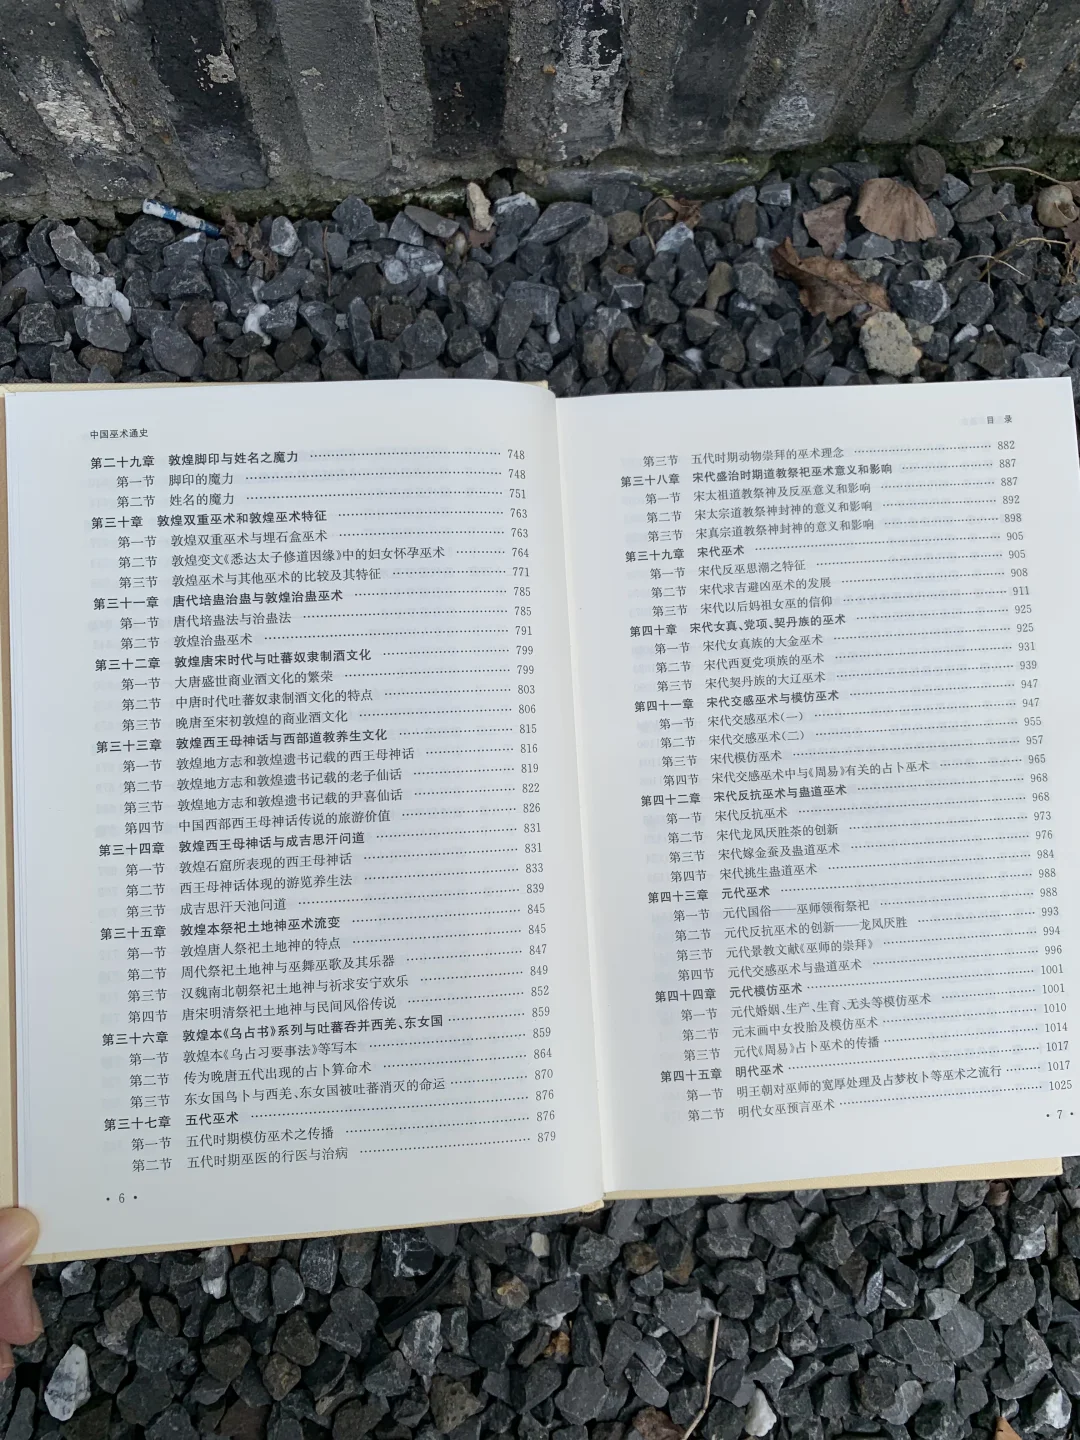 中国巫术通史
第二十九章 敦煌脚印与姓名之魔力 …… 748
第一节 脚印的魔力 …… 748
第二节 姓名的魔力 …… 751
第三十章 敦煌双重巫术和敦煌巫术特征 …… 763
第一节 敦煌双重巫术与埋石盒巫术 …… 763
第二节 敦煌变文《悉达太子修道因缘》中的妇女怀孕巫术 …… 764
第三节 敦煌巫术与其他巫术的比较及其特征 …… 771
第三十一章 唐代培蛊治蛊与敦煌治蛊巫术 …… 785
第一节 唐代培蛊法与治蛊法 …… 785
第二节 敦煌治蛊巫术 …… 791
第三十二章 敦煌唐宋时代与吐蕃奴隶制酒文化 …… 799
第一节 大唐盛世商业酒文化的繁荣 …… 799
第二节 中唐时代吐蕃奴隶制酒文化的特点 …… 803
第三节 晚唐至宋初敦煌的商业酒文化 …… 806
第三十三章 敦煌西王母神话与西部道教养生文化 …… 815
第一节 敦煌地方志和敦煌遗书记载的西王母神话 …… 816
第二节 敦煌地方志和敦煌遗书记载的老子仙话 …… 819
第三节 敦煌地方志和敦煌遗书记载的尹喜仙话 …… 822
第四节 中国西部西王母神话传说的旅游价值 …… 826
第三十四章 敦煌西王母神话与成吉思汗问道 …… 831
第一节 敦煌石窟所表现的西王母神话 …… 831
第二节 西王母神话体现的游览养生法 …… 833
第三节 成吉思汗天池问道 …… 839
第三十五章 敦煌本祭祀土地神巫术流变 …… 845
第一节 敦煌唐人祭祀土地神的特点 …… 845
第二节 周代祭祀土地神与巫舞巫歌及其乐器 …… 847
第三节 汉魏南北朝祭祀土地神与祈求安宁欢乐 …… 849
第四节 唐宋明清祭祀土地神与民间风俗传说 …… 852
第三十六章 敦煌本《乌占书》系列与吐蕃吞并西羌、东女国 …… 859
第一节 敦煌本《乌占习要事法》等写本 …… 859
第二节 传为晚唐五代出现的占卜算命术 …… 864
第三节 东女国鸟卜与西羌、东女国被吐蕃消灭的命运 …… 870
第三十七章 五代巫术 …… 876
第一节 五代时期模仿巫术之传播 …… 876
第二节 五代时期巫医的行医与治病 …… 879
• 6 •
目 录
第三节 五代时期动物崇拜的巫术理念 …… 882
第三十八章 宋代盛治时期道教祭祀巫术意义和影响 …… 887
第一节 宋太祖道教祭神及反巫意义和影响 …… 887
第二节 宋太宗道教祭神封神的意义和影响 …… 892
第三节 宋真宗道教祭神封神的意义和影响 …… 898
第三十九章 宋代巫术 …… 905
第一节 宋代反巫思潮之特征 …… 905
第二节 宋代求吉避凶巫术的发展 …… 908
第三节 宋代以后妈祖女巫的信仰 …… 911
第四十章 宋代女真、党项、契丹族的巫术 …… 925
第一节 宋代女真族的大金巫术 …… 925
第二节 宋代西夏党项族的巫术 …… 931
第三节 宋代契丹族的大辽巫术 …… 939
第四十一章 宋代交感巫术与模仿巫术 …… 947
第一节 宋代交感巫术(一) …… 947
第二节 宋代交感巫术(二) …… 955
第三节 宋代模仿巫术 …… 957
第四节 宋代交感巫术中与《周易》有关的占卜巫术 …… 965
第四十二章 宋代反抗巫术与蛊道巫术 …… 968
第一节 宋代反抗巫术 …… 968
第二节 宋代龙凤厌胜茶的创新 …… 973
第三节 宋代嫁金蚕及蛊道巫术 …… 976
第四节 宋代挑生蛊道巫术 …… 984
第四十三章 元代巫术 …… 988
第一节 元代国俗——巫师领衔祭祀 …… 988
第二节 元代反抗巫术的创新——龙凤厌胜 …… 993
第三节 元代景教文献《巫师的崇拜》 …… 994
第四节 元代交感巫术与蛊道巫术 …… 996
第四十四章 元代模仿巫术 …… 1001
第一节 元代婚姻、生产、生育、无头等模仿巫术 …… 1001
第二节 元末画中女投胎及模仿巫术 …… 1008
第三节 元代《周易》占卜巫术的传播 …… 1014
第四十五章 明代巫术 …… 1017
第一节 明王朝对巫师的宽厚处理及占梦枚卜等巫术之流行 …… 1017
第二节 明代女巫预言巫术 …… 1025
• 7 •